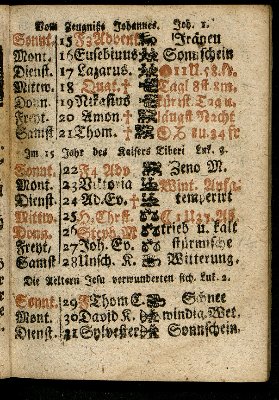 Vom Zeugniß Johannes. Joh. 1.
Sonnt. 15 F3 Advent Fränen
Mont. 16 Eusebius Sonnschein
Dienst. 17 Lazarus.
Mittw. 18 Quat. † Tagl 8st 8m.
Donn. 19 Nikasius
Freyt. 20 Amon † längst Nacht
Samst 21 Thom. †
Im 15 Jahr des Kaisers Tiberi Luk. 3.
Sonnt. 22 F4 Adv Zeno M.
Mont. 23 Viktoria Wint. Anfa.
Dienst. 24 Ad. Ev. † temperirt
Mittw. 25 H. Christ.
Donn. 26 Steph. M trieb u. kalt
Freyt. 27 Joh. Ev. stürmische
Samst 28 Unsch. K. Witterung.
Die Aeltern Jesu verwunderten sich. Luk. 2.
Sonnt. 29 F Thom C. Schnee
Mont. 30 David K. windig. Wet.
Dienst. 31 Sylvester Sonnschein.